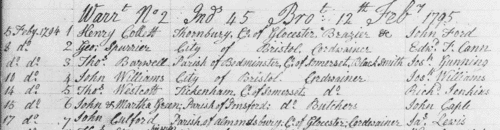 Warrt No 2 Ind 45 Brot 12th Feby 1795
5 Feby 1794 1 Henry Collett Thornbury, Co of Glocester Brazier &c John Ford
8 do 2 Geo: Spurrier City of Bristol Cordwainer Edwd T. Cann
do do 3 Thos Barwell Parish of Bedminster, Co of Somerset, Black Smith Jos: Gunning
10 do 4 John Williams City of Bristol Cordwainer Jos: Williams
14 do 5 Thos Westcott Tickenham, Co of Somerset do Richd Jenkins
16 do 6 John & Martha Green; Parish of Pensford; do Butchers John Cable
17 do 7 John Culford Parish of Almondsbury Co of Glocester; Cordwainer Jas: Lewis